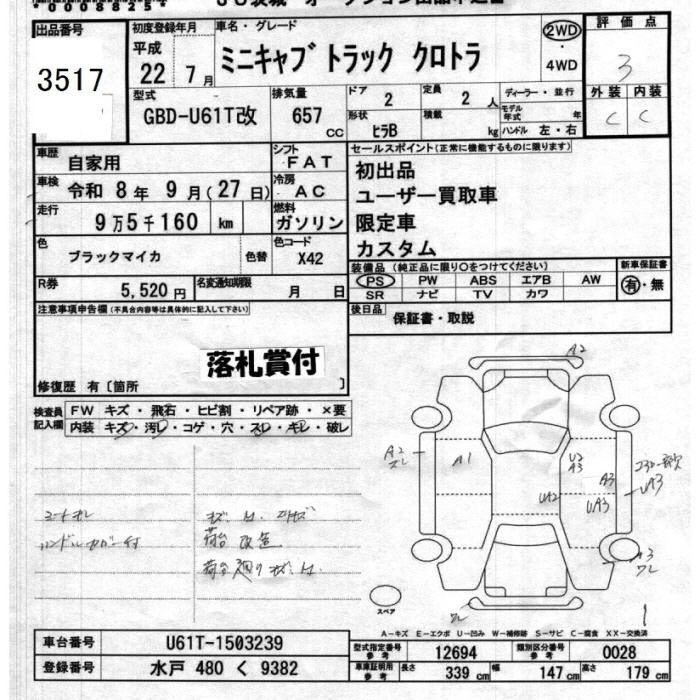 *0008825*
出品番号
3517
初度登録年月
平成
22年 7月
車名・グレード
ミニキャブトラック クロトラ
2WD
・
4WD
評価点
3
外装 内装
C C
型式
GBD-U61T改
排気量
657
CC
ドア
2
定員
2 人
形状
ヒラB
積載
kg
ディーラー・並行
モデル年式 年
ハンドル 左・右
車歴
自家用
シフト
FAT
車検
令和 8年 9月(27日)
冷房
AC
走行
9万5千160 km
燃料
ガソリン
色
ブラックマイカ
色替
色コード
X42
R券
5,520円
名変通知期限
月 日
セールスポイント(正常に機能するものに限ります)
初出品
ユーザー買取車
限定車
カスタム
装備品(純正品に限り〇をつけてください)
PS PW ABS エアB AW
SR ナビ TV カワ
新車保証書
有・無
後日品
保証書・取説
注意事項申告欄(不具合内容等は具体的に記入して下さい)
落札賞付
修復歴 有〔箇所 〕
検査員記入欄
FW キズ・飛石・ヒビ割・リペア跡・×要
内装 キズ・汚レ・コゲ・穴・スレ・キレ・破レ
シートキレ
ハンドルカバー付
荷台改造
A2
A2
A1
U2
A3
A3
UA2
UA3
UA3
A3
スペア
A-キズ E-エクボ U-凹み W-補修跡 S-サビ C-腐食 XX-交換済
車台番号
U61T-1503239
登録番号
水戸 480 く 9382
型式指定番号
参考
12694
類別区分番号
参考
0028
車庫証明用
参考
長さ
339 cm
幅
147 cm
高さ
179 cm